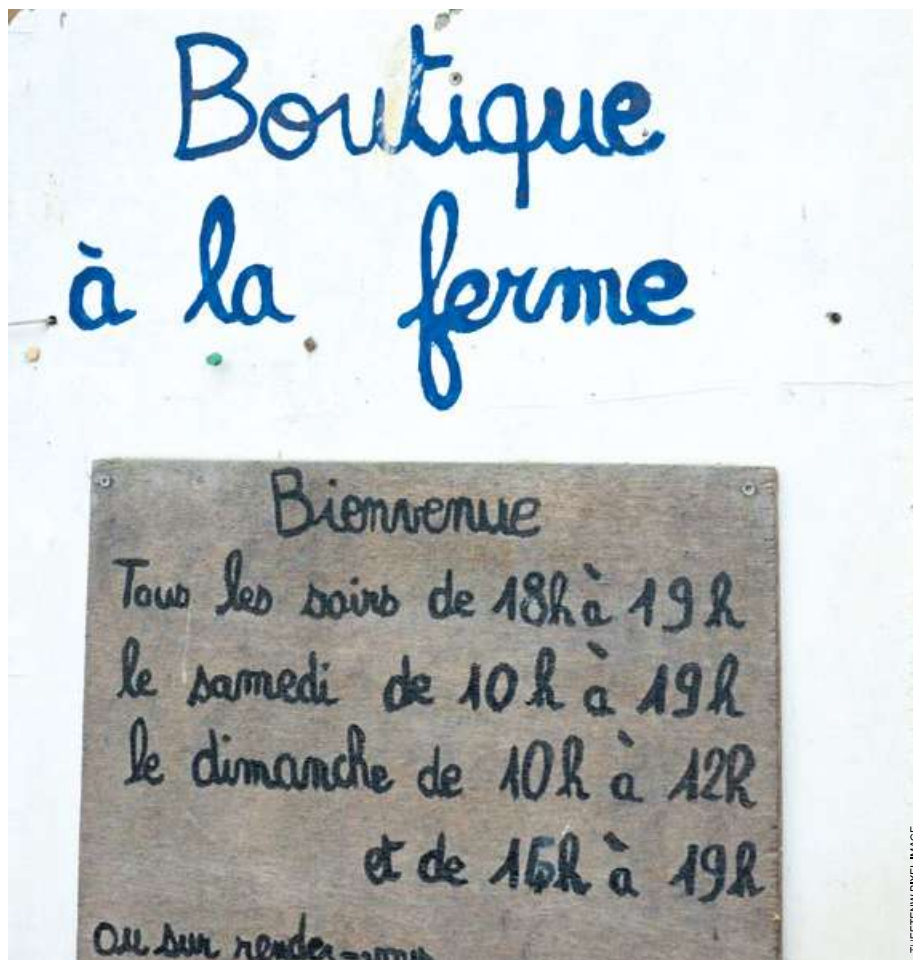 Boutique
à la ferme
Bienvenue
Tous les soirs de 18h à 19h
le samedi de 10h à 19h
le dimanche de 10h à 12h
et de 16h à 19h
ou sur rendez-vous